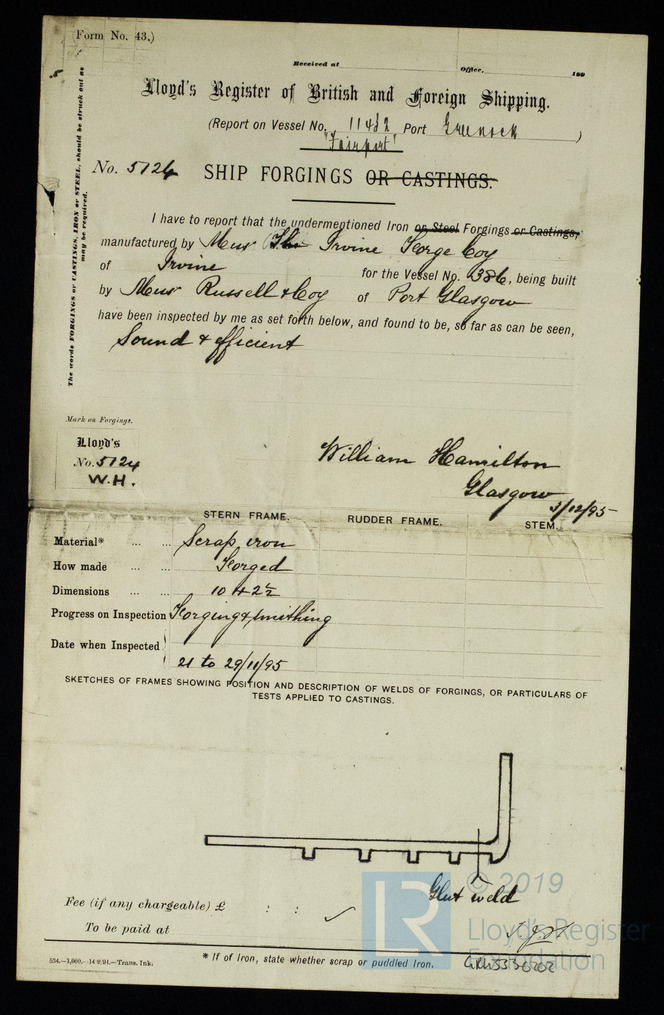 Form No. 43.)
Received at Office, 189
Lloyd's Register of British and Foreign Shipping.
(Report on Vessel No. 11482 Port Greenock )
"Fairport"
No. 5124 SHIP FORGINGS OR CASTINGS.
The words FORGINGS or CASTINGS, IRON or STEEL, should be struck out as may be required.
I have to report that the undermentioned Iron or Steel Forgings or Castings,
manufactured by Messrs The Irvine Forge Coy
of Irvine for the Vessel No. 386, being built
by Messrs Russell & Coy of Port Glasgow
have been inspected by me as set forth below, and found to be, so far as can be seen,
Sound & efficient
Mark on Forgings.
Lloyd's
No. 5124
W.H.
William Hamilton
Glasgow
3/12/95
STERN FRAME. RUDDER FRAME. STEM.
Material* ... ... Scrap iron
How made ... ... Forged
Dimensions ... ... 10 + 2½
Progress on Inspection Forging & smithing
Date when Inspected
21 to 29/11/95
SKETCHES OF FRAMES SHOWING POSITION AND DESCRIPTION OF WELDS OF FORGINGS, OR PARTICULARS OF
TESTS APPLIED TO CASTINGS.
Glut weld
Fee (if any chargeable) £ : :
To be paid at
554.—1,000.—14/9/94.—Trans. Ink.
* If of Iron, state whether scrap or puddled Iron.
LR © 2019
Lloyd's Register
Foundation